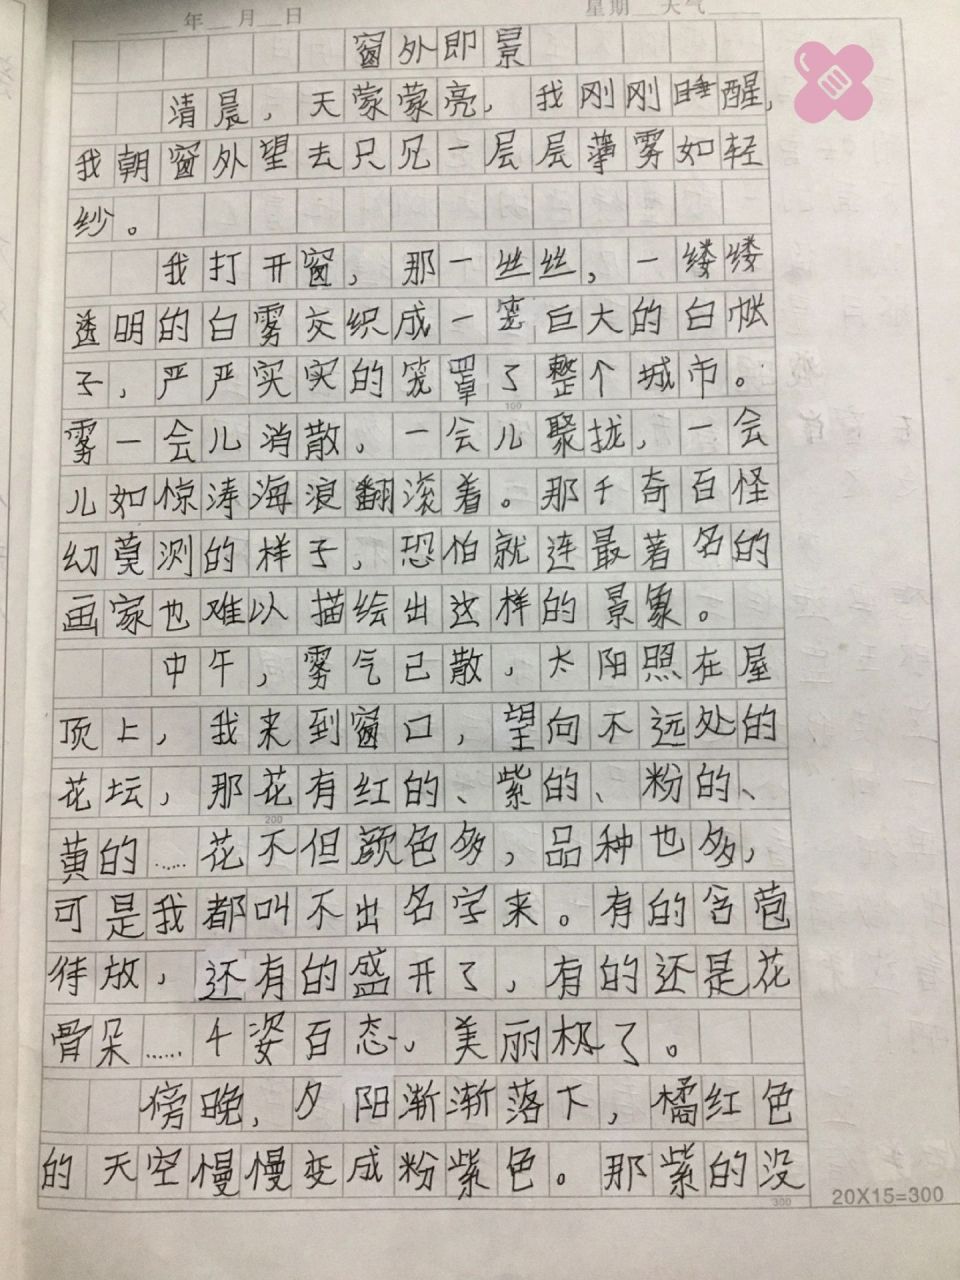 年 月 日 星期 天气
窗外即景
清晨，天蒙蒙亮，我刚刚睡醒，
我朝窗外望去只见一层层薄雾如轻
纱。
我打开窗，那一丝丝，一缕缕
透明的白雾交织成一笼巨大的白帐
子，严严实实的笼罩了整个城市。
100
雾一会儿消散，一会儿聚拢，一会
儿如惊涛海浪翻滚着。那千奇百怪
幻莫测的样子，恐怕就连最著名的
画家也难以描绘出这样的景象。
中午，雾气已散，太阳照在屋
顶上，我来到窗口，望向不远处的
花坛，那花有红的、紫的、粉的、
200
黄的……花不但颜色多，品种也多，
可是我都叫不出名字来。有的含苞
待放，还有的盛开了，有的还是花
骨朵……千姿百态，美丽极了。
傍晚，夕阳渐渐落下，橘红色
的天空慢慢变成粉紫色。那紫的没
300
20X15=300